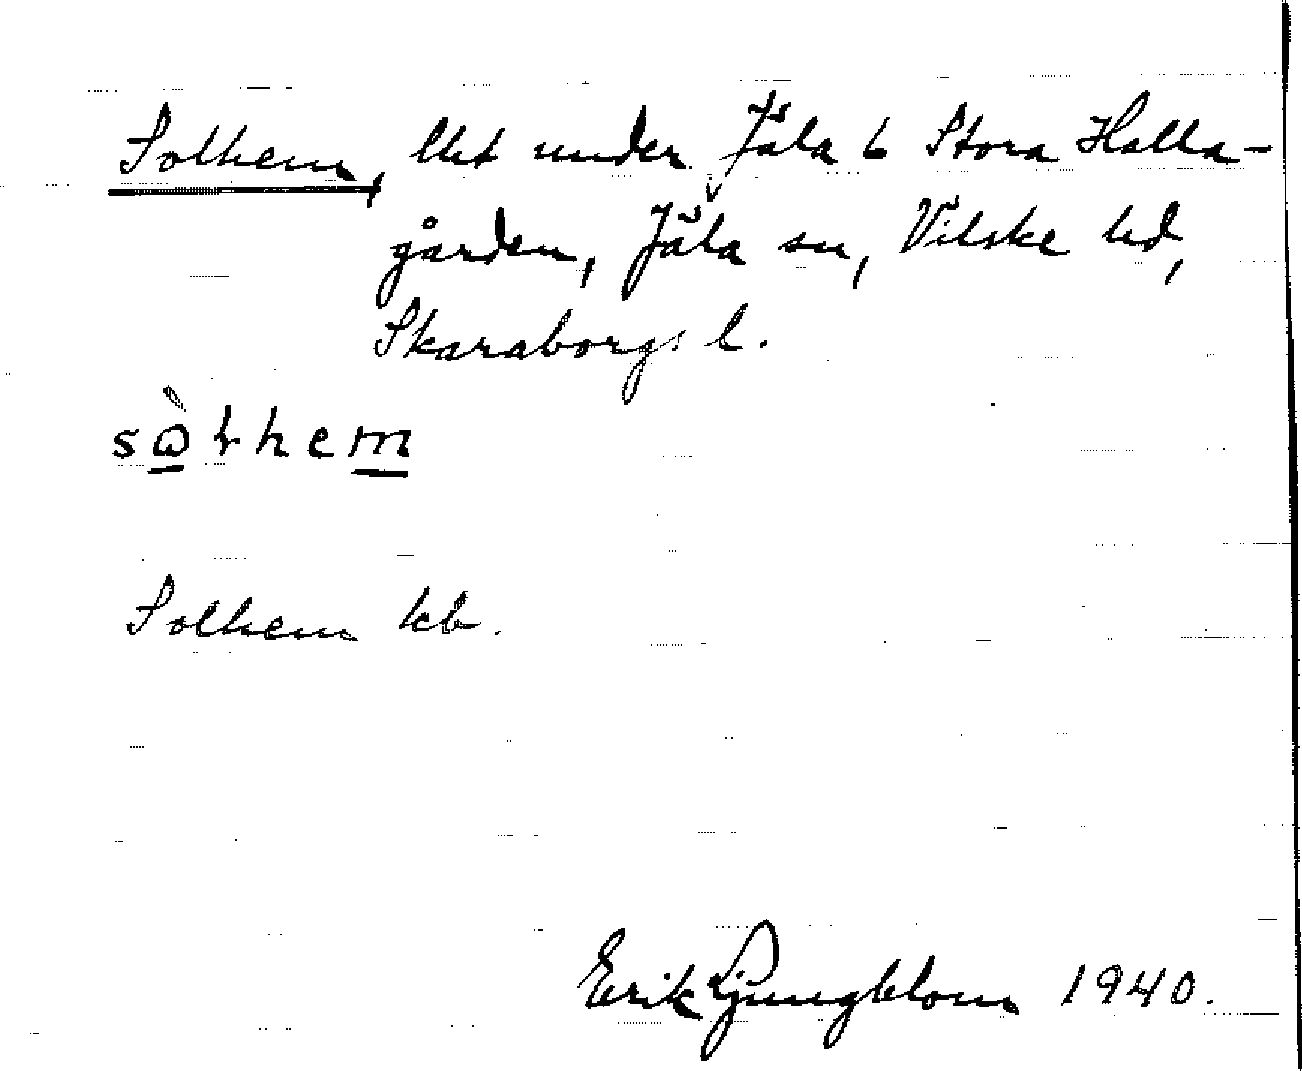 Solhem, lht under Jäla 6 Stora Halla-
gården, Jäla sn, Vilske hd,
Skaraborgs l.
sò̱lhem̱
Solhem kb.
Erik Ljungblom 1940.